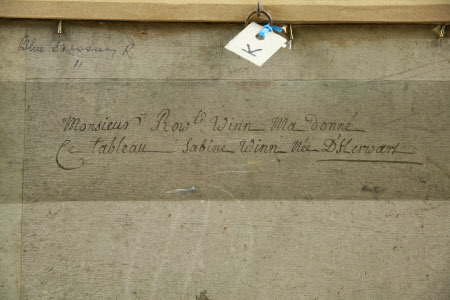 Blue Dressing R
"
K
Monsieur Row^ld Winn Ma donné
Ce tableau Sabine Winn Née D'Herwart